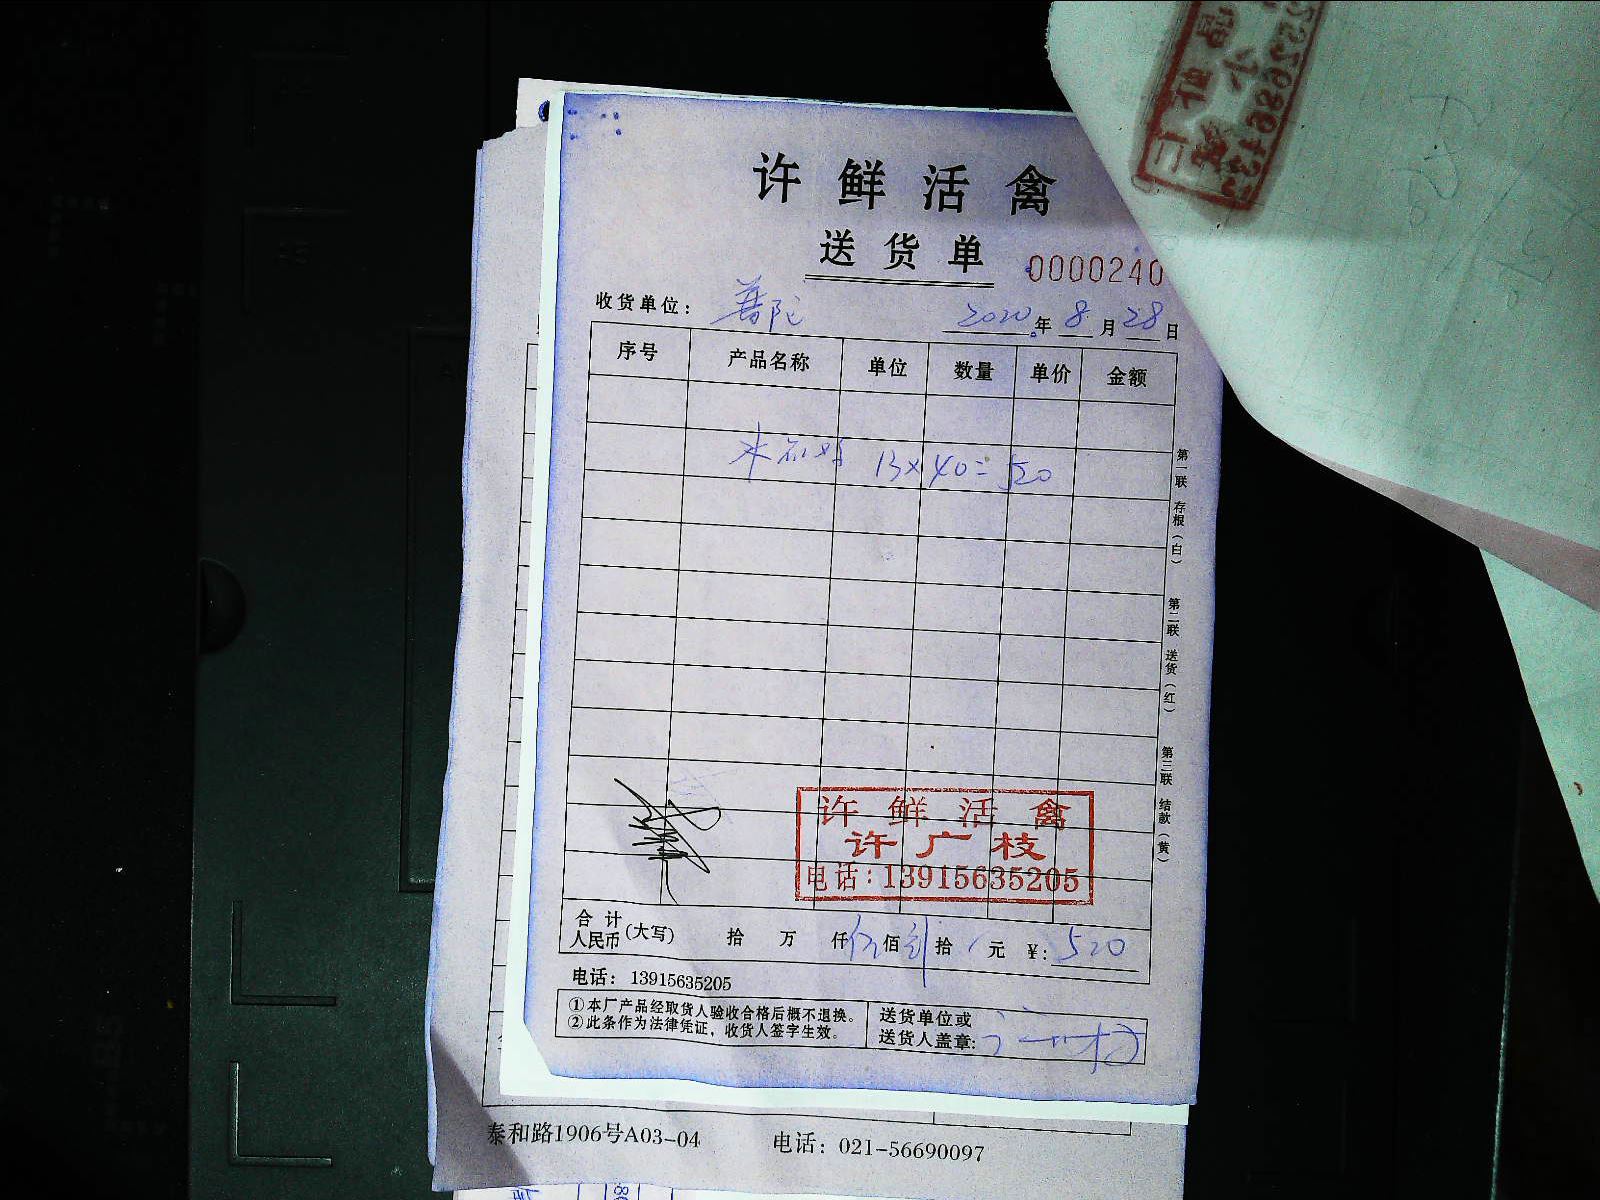 许鲜活禽
送货单
0000240
收货单位：普陀 2020年8月28日
序号 产品名称 单位 数量 单价 金额
13×40=520
第一联 存根（白）
第二联 送货（红）
第三联 结款（黄）
许鲜活禽
许广枝
电话：13915635205
合计人民币(大写) 拾 万 仟伍佰贰拾 元 ¥：520
电话：13915635205
①本厂产品经取货人验收合格后概不退换。
②此条作为法律凭证，收货人签字生效。
送货单位或
送货人盖章：
泰和路1906号A03-04 电话：021-56690097